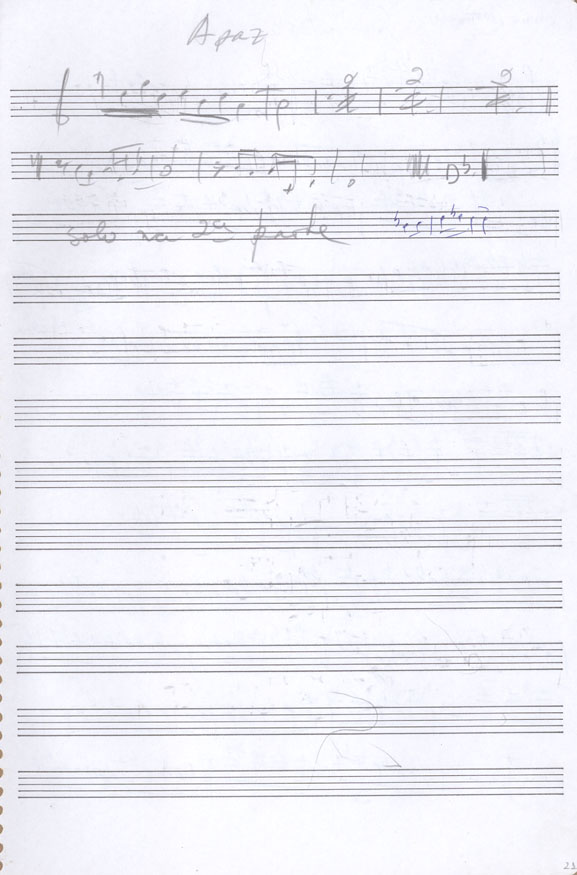 A paz
2 2 2
Db
solo na 2ª parte